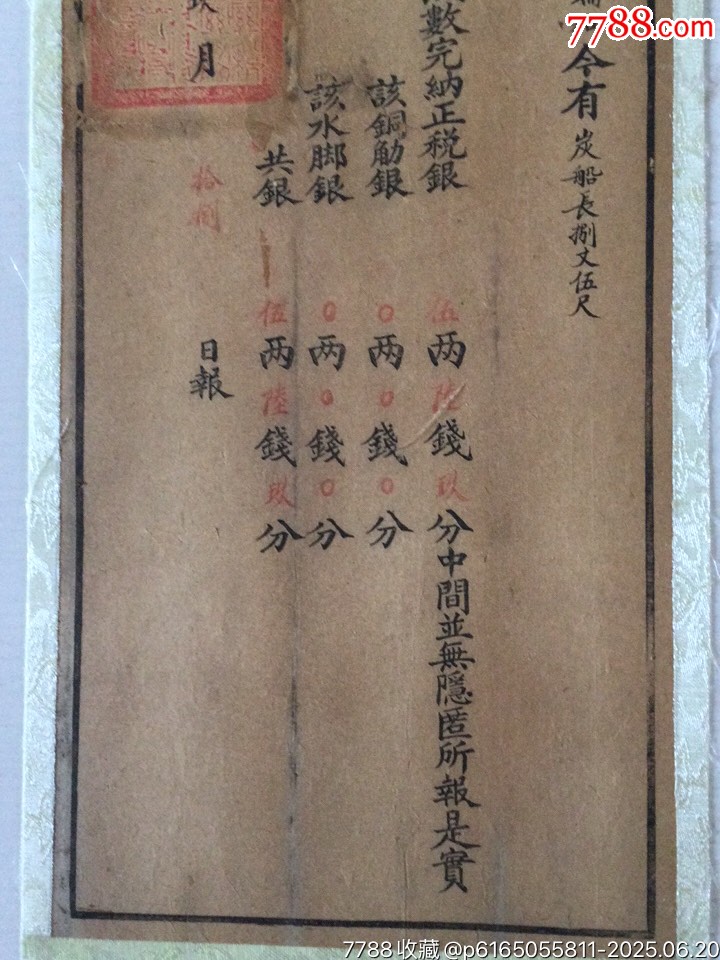 7788.com
今有炭船長捌丈伍尺
數完納正税銀伍两陸錢玖分中間並無隱匿所報是實
該銅觔銀〇两〇錢〇分
該水脚銀〇两〇錢〇分
共銀伍两陸錢玖分
玖月拾捌日報
7788收藏@p6165055811-2025.06.20